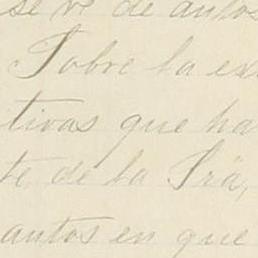 se vé de autos
Sobre la ex
tivas que ha
te de la Sra,
autos en que